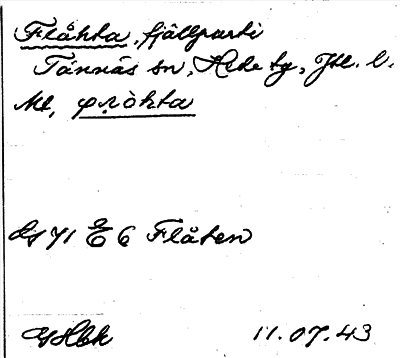 Flåhta, fjällparti
Tännäs sn, Hede tg, Jtl. l.
Ml, 
GS 71 E 6 Flåten
GHbk 11.07.43